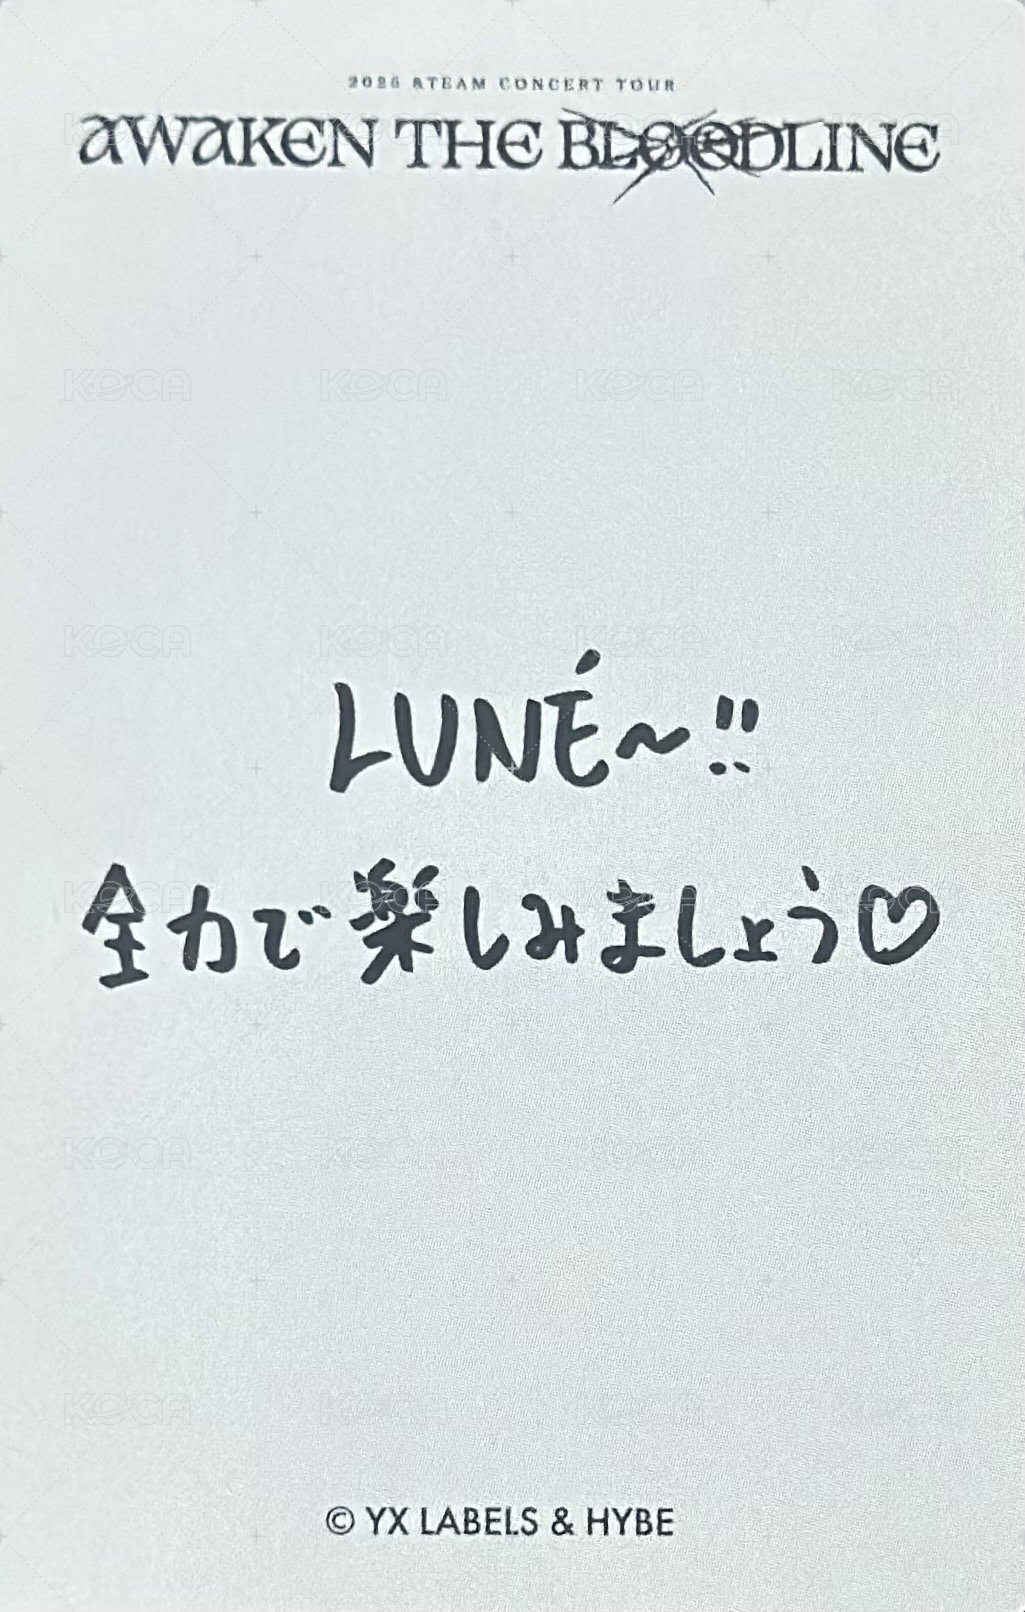 2026 &TEAM CONCERT TOUR
AWAKEN THE BLOODLINE
LUNÉ~!!
全力で楽しみましょう♡
© YX LABELS & HYBE
KOCA